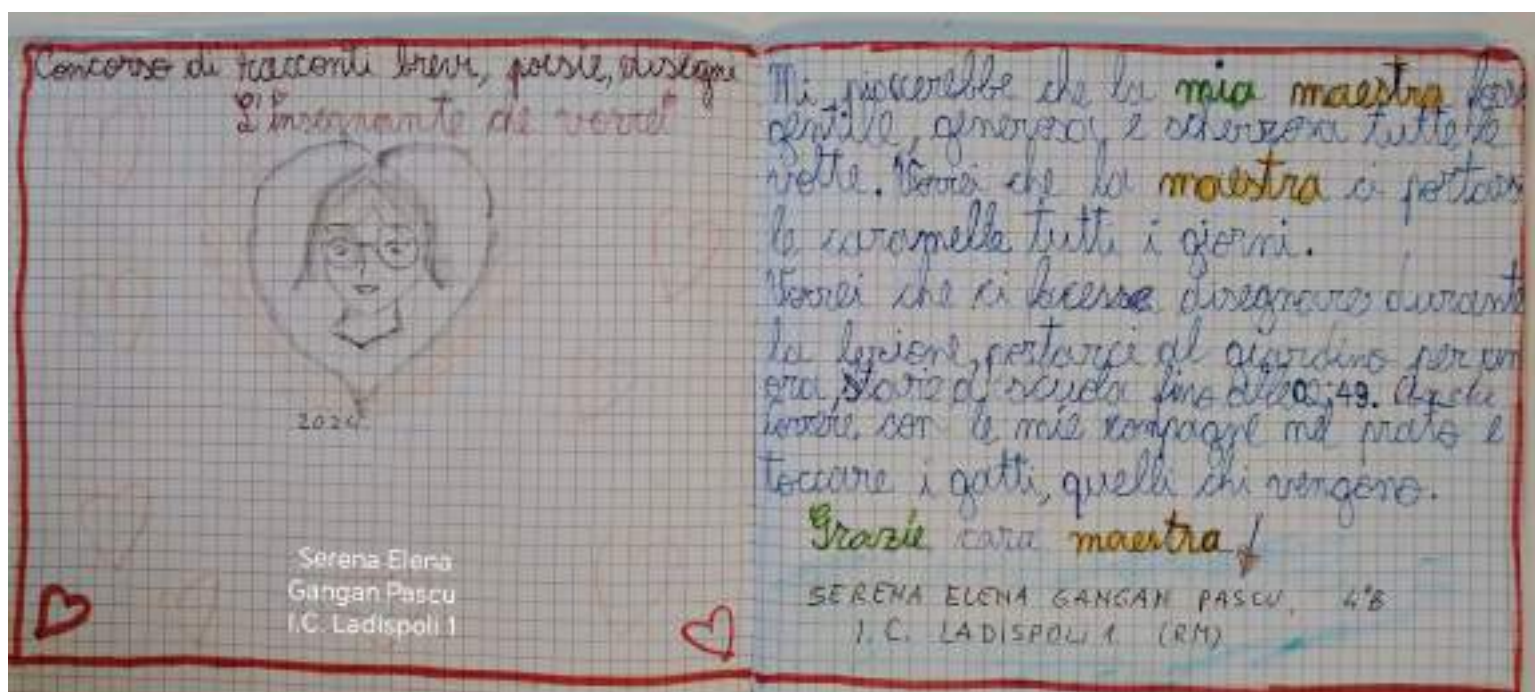 Concorso di racconti brevi, poesie, disegni
"L'insegnante che vorrei"
Serena Elena
Gangan Pascu
I.C. Ladispoli 1
Mi piacerebbe che la mia maestra
gentile, generosa, e scherzosa tutte le
volte. Vorrei che la maestra ci portas
le caramelle tutti i giorni.
Vorrei che ci facesse disegnare durante
la lezione, portarci al giardino per un
ora, stare a scuola fino alle 02;49. Anche
correre con le mie compagne nel prato e
toccare i gatti, quelli che vengono.
Grazie cara maestra!
SERENA ELENA GANGAN PASCU, 4°B
I.C. LADISPOLI 1 (RM)